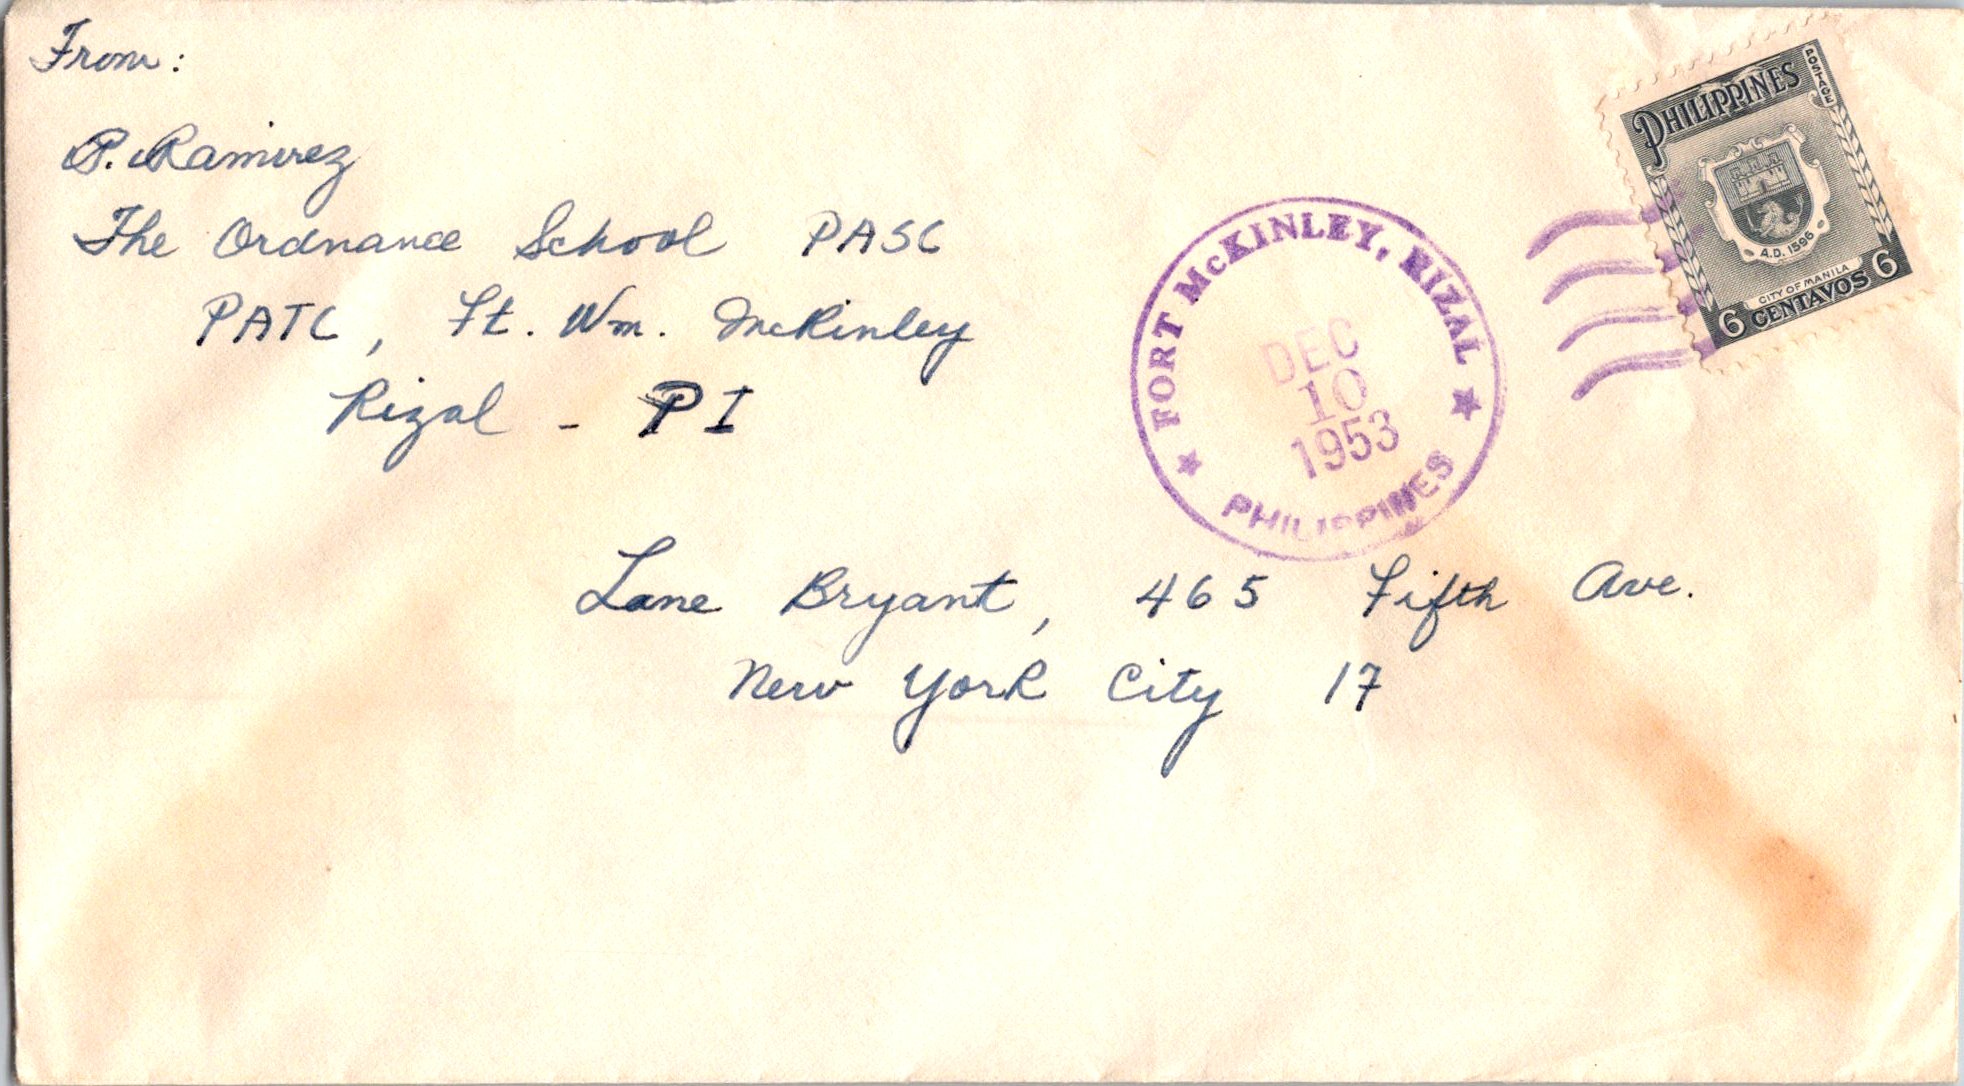 From:
P. Ramirez
The Ordnance School PASC
PATC, Ft. Wm. McKinley
Rizal - PI
FORT McKINLEY, RIZAL
DEC
10
1953
PHILIPPINES
PHILIPPINES
POSTAGE
A.D. 1596
CITY OF MANILA
6 CENTAVOS 6
Lane Bryant, 465 Fifth Ave.
New York City 17